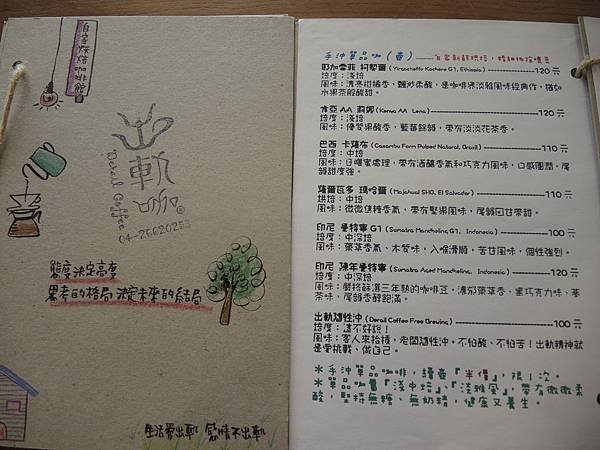 自家烘焙咖啡館
出軌咖®
Derail Coffee
04-26620253
態度決定高度
思考的格局 決定未來的結局
生活愛出軌 感情不出軌
手沖單品咖(壺) ——自家新鮮烘焙,精細揀挖壞豆
耶加雪菲 柯契爾 (Yirgacheffe Kochere G1, Ethiopia) 120元
焙度:淺焙
風味:清亮柑橘香,微妙柔酸,是咖啡界淡雅風味經典作,猶如
水果茶般酸甜。
肯亞 AA 莉娜 (Kenya AA Lena) 120元
焙度:淺焙
風味:優質果酸香,藍莓餘韻,帶有淡淡花茶香。
巴西 卡蘿布 (Caxambu Farm Pulped Natural, Brasil) 110元
焙度:中焙
風味:日曬蜜處理,帶有酒釀香氣和巧克力風味,口感圓潤,尾
韻甜度強。
薩爾瓦多 瑪哈爾 (Majahual SHG, El Salvador) 110元
烘焙:中焙
風味:微微焦糖香氣,帶有堅果風味,尾韻回甘帶甜。
印尼 曼特寧 G1 (Sumatra Mandheling G1, Indonesia) 100元
焙度:中深焙
風味:藥草香氣、木質味,入喉滑順,苦甘風味,個性強烈。
印尼 陳年曼特寧 (Sumatra Aged Mandheling, Indonesia) 120元
焙度:中深焙
風味:嚴格篩選三年熟的咖啡豆,濃郁藥草香、黑巧克力味、蔘
茶味,尾韻香醇飽滿。
出軌隨性沖 (Derail Coffee Free Brewing) 100元
焙度:這不好說!
風味:客人來拾穫,老闆隨性沖。不怕酸、不怕苦!出軌精神就
是愛挑戰、做自己。
※手沖單品咖啡,續壺『半價』,限1次。
※單品咖屬『淺中焙』、『淡雅風』,帶有微微柔
酸,堅持無糖、無奶精,健康又養生。